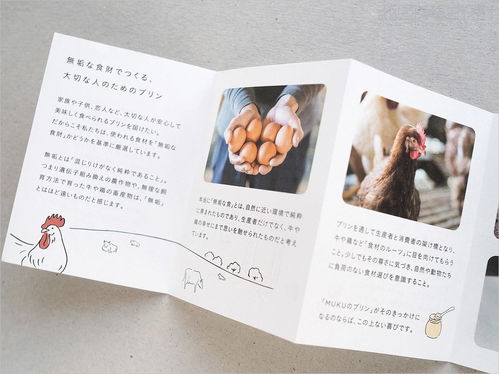 無垢な食財でつくる、
大切な人のためのプリン
家族や子供、恋人など、大切な人が安心して
美味しく食べられるプリンを届けたい。
だからこそ私たちは、使われる食材を「無垢な
食財」かどうかを基準に厳選しています。
無垢とは「混じりけがなく純粋であること」。
つまり遺伝子組み換えの農作物や、無理な飼
育方法で育った牛や鶏の畜産物は、「無垢」
とはほど遠いものだと感じます。
本当に「無垢な食」とは、自然に近い環境で純粋
に育まれたものであり、生産者だけでなく、牛や
鶏の幸せにまで思いを馳せられたものだと考え
ています。
プリンを通して生産者と消費者の架け橋となり、
牛や鶏など「食材のルーツ」に目を向けてもらう
こと。少しでもその尊さに気づき、自然や動物たち
に負荷のない食材選びを意識すること。
「MUKUのプリン」がそのきっかけに
なるのならば、この上ない喜びです。